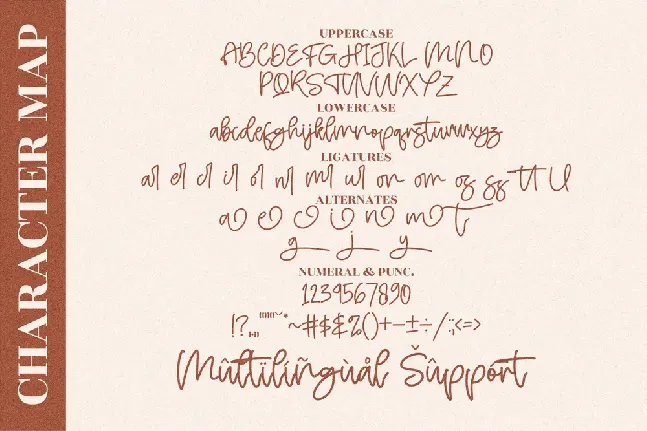 CHARACTER MAP
UPPERCASE
ABCDEFGHIJKL MNO
PQRSTUVWXYZ
LOWERCASE
abcdefghijklmnopqrstuvwxyz
LIGATURES
al el cl il ol nl ml ul on om os ss tt ll
ALTERNATES
a e c i n m t
g j y
NUMERAL & PUNC.
1234567890
~#$&%()+−±÷/:;<=>
Mûltïlíñgùål Šûppórt